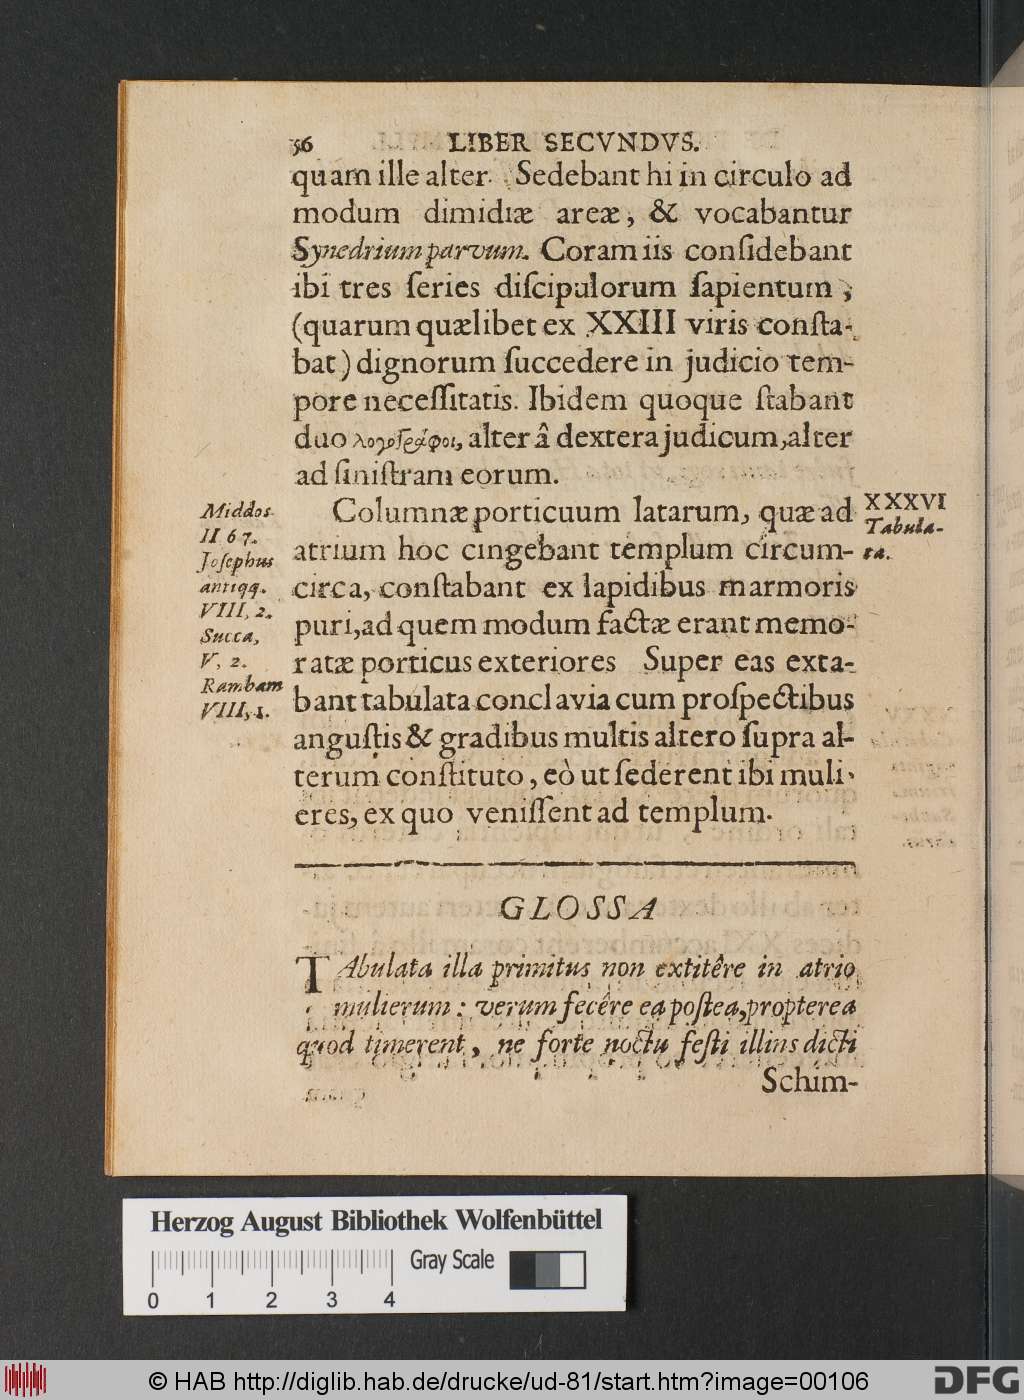 56 LIBER SECVNDVS.
quam ille alter. Sedebant hi in circulo ad
modum dimidiæ areæ, & vocabantur
Synedrium parvum. Coram iis conſidebant
ibi tres ſeries diſcipulorum ſapientum,
(quarum quælibet ex XXIII viris conſta-
bat) dignorum ſuccedere in judicio tem-
pore neceſſitatis. Ibidem quoque ſtabant
duo λογογράφοι, alter â dextera judicum, alter
ad ſiniſtram eorum.
Columnæ porticuum latarum, quæ ad
atrium hoc cingebant templum circum-
circa, conſtabant ex lapidibus marmoris
puri, ad quem modum factæ erant memo-
ratæ porticus exteriores Super eas exta-
bant tabulata conclavia cum proſpectibus
anguſtis & gradibus multis altero ſupra al-
terum conſtituto, eò ut ſederent ibi muli-
eres, ex quo veniſſent ad templum.
Middos
II 67.
Joſephus
antiqq.
VIII, 2.
Succa,
V, 2.
Rambam
VIII, 1.
XXXVI
Tabula-
ta.
GLOSSA
TAbulata illa primitus non extitêre in atrio
mulierum: verum fecêre ea poſtea, propterea
quod timerent, ne forte noctu feſti illius dicti
Schim-
Herzog August Bibliothek Wolfenbüttel
Gray Scale
0 1 2 3 4
© HAB http://diglib.hab.de/drucke/ud-81/start.htm?image=00106
DFG